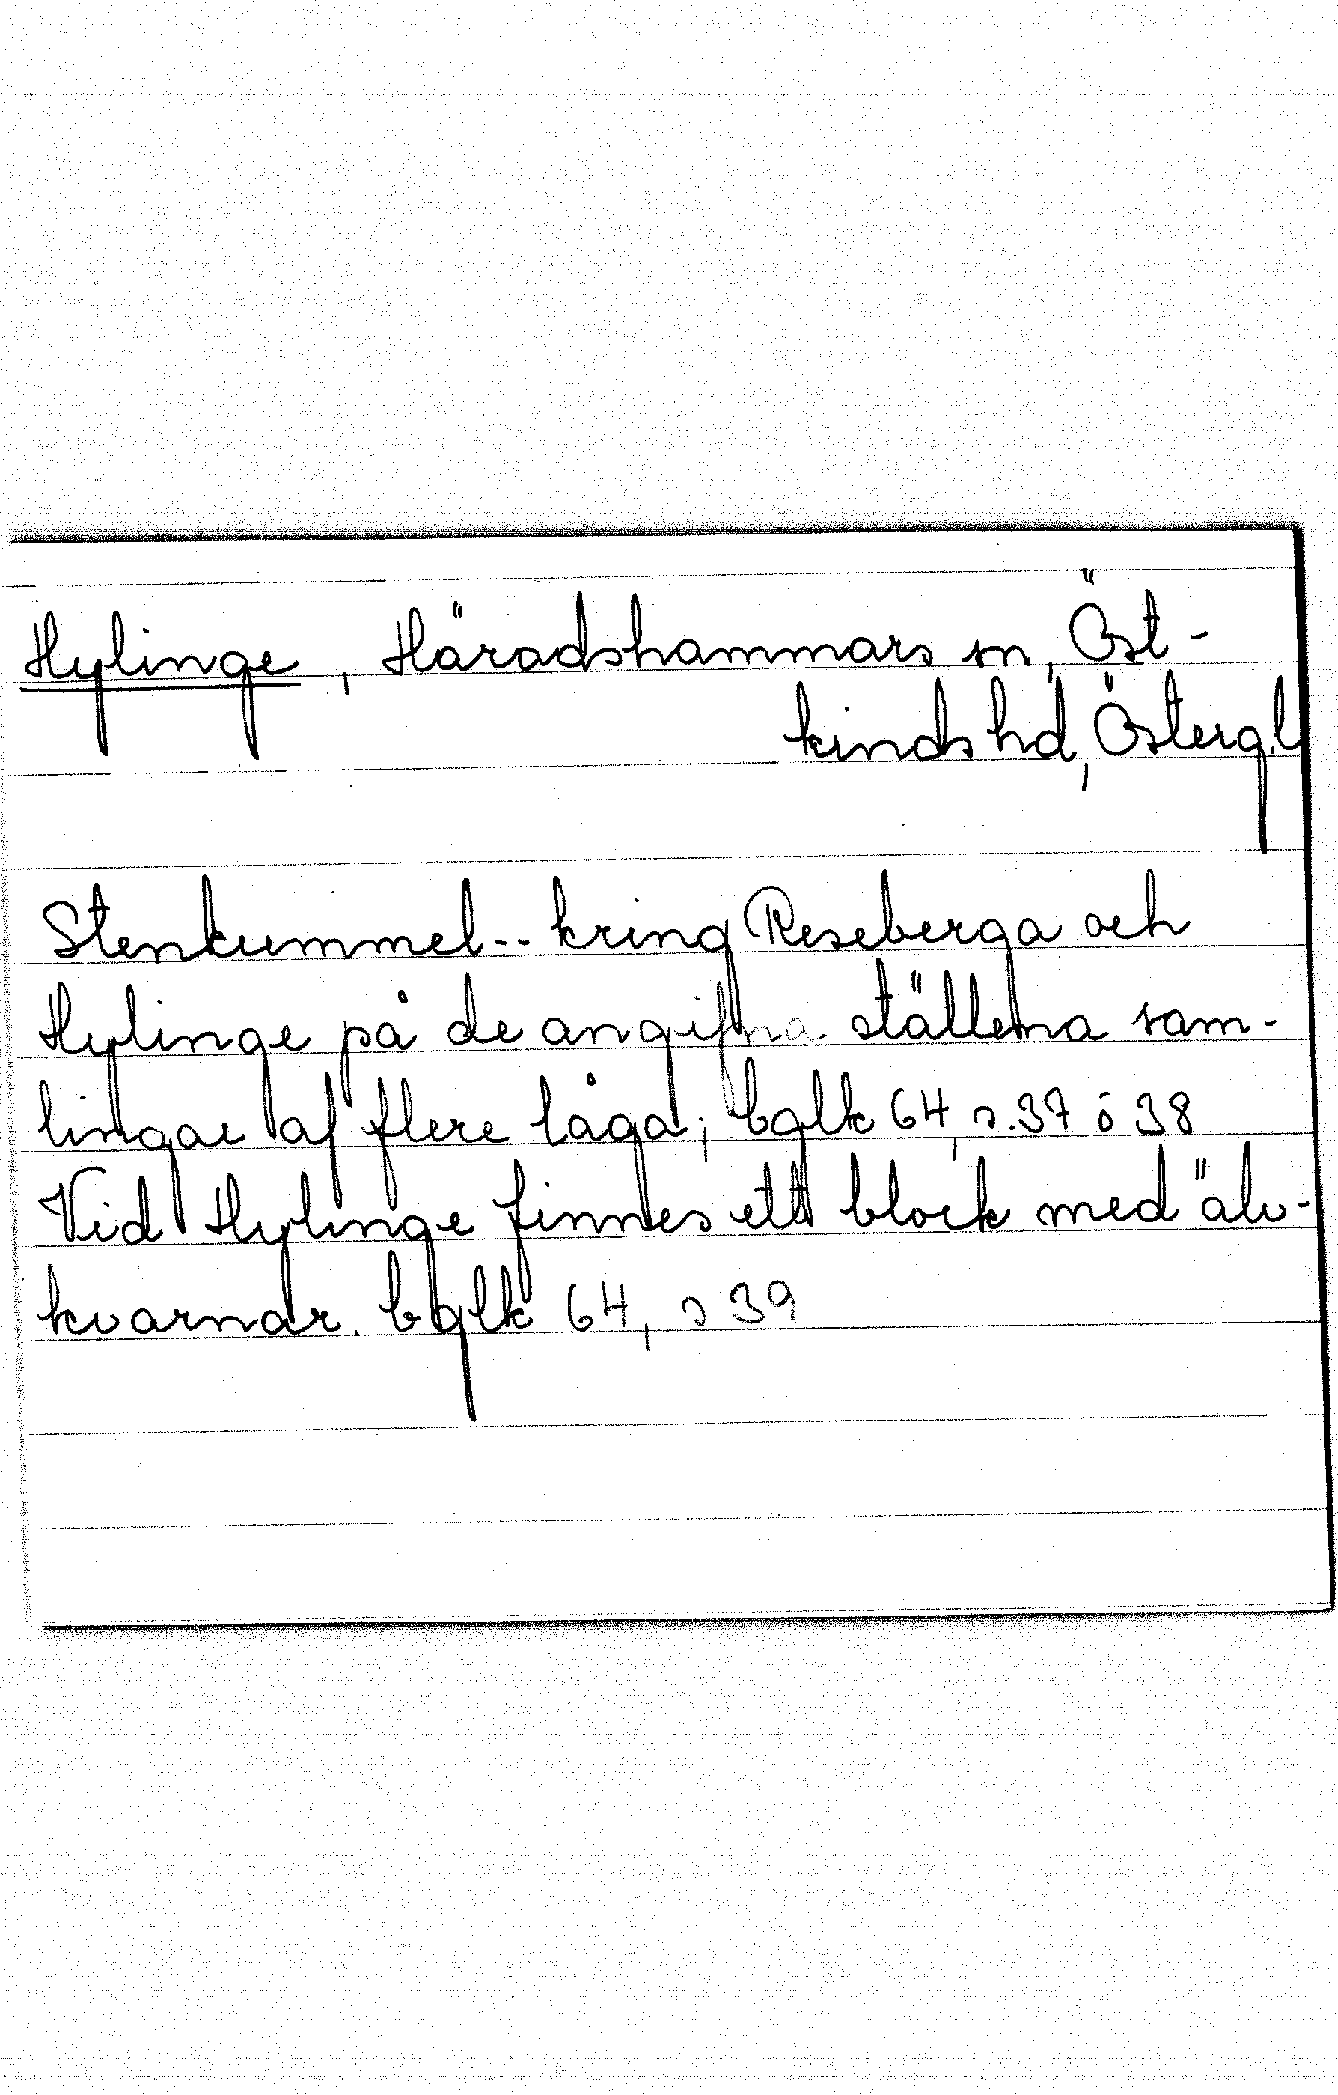 Hylinge, Häradshammars sn, Öst-
kinds hd, Östergl
Stenkummel-- kring Reseberga och
Hylinge på de angifna ställena sam-
lingar af flere låga; bglk 64, s.37 o 38
Vid Hylinge finnes ett block med älv-
kvarnar. bglk 64, s 39